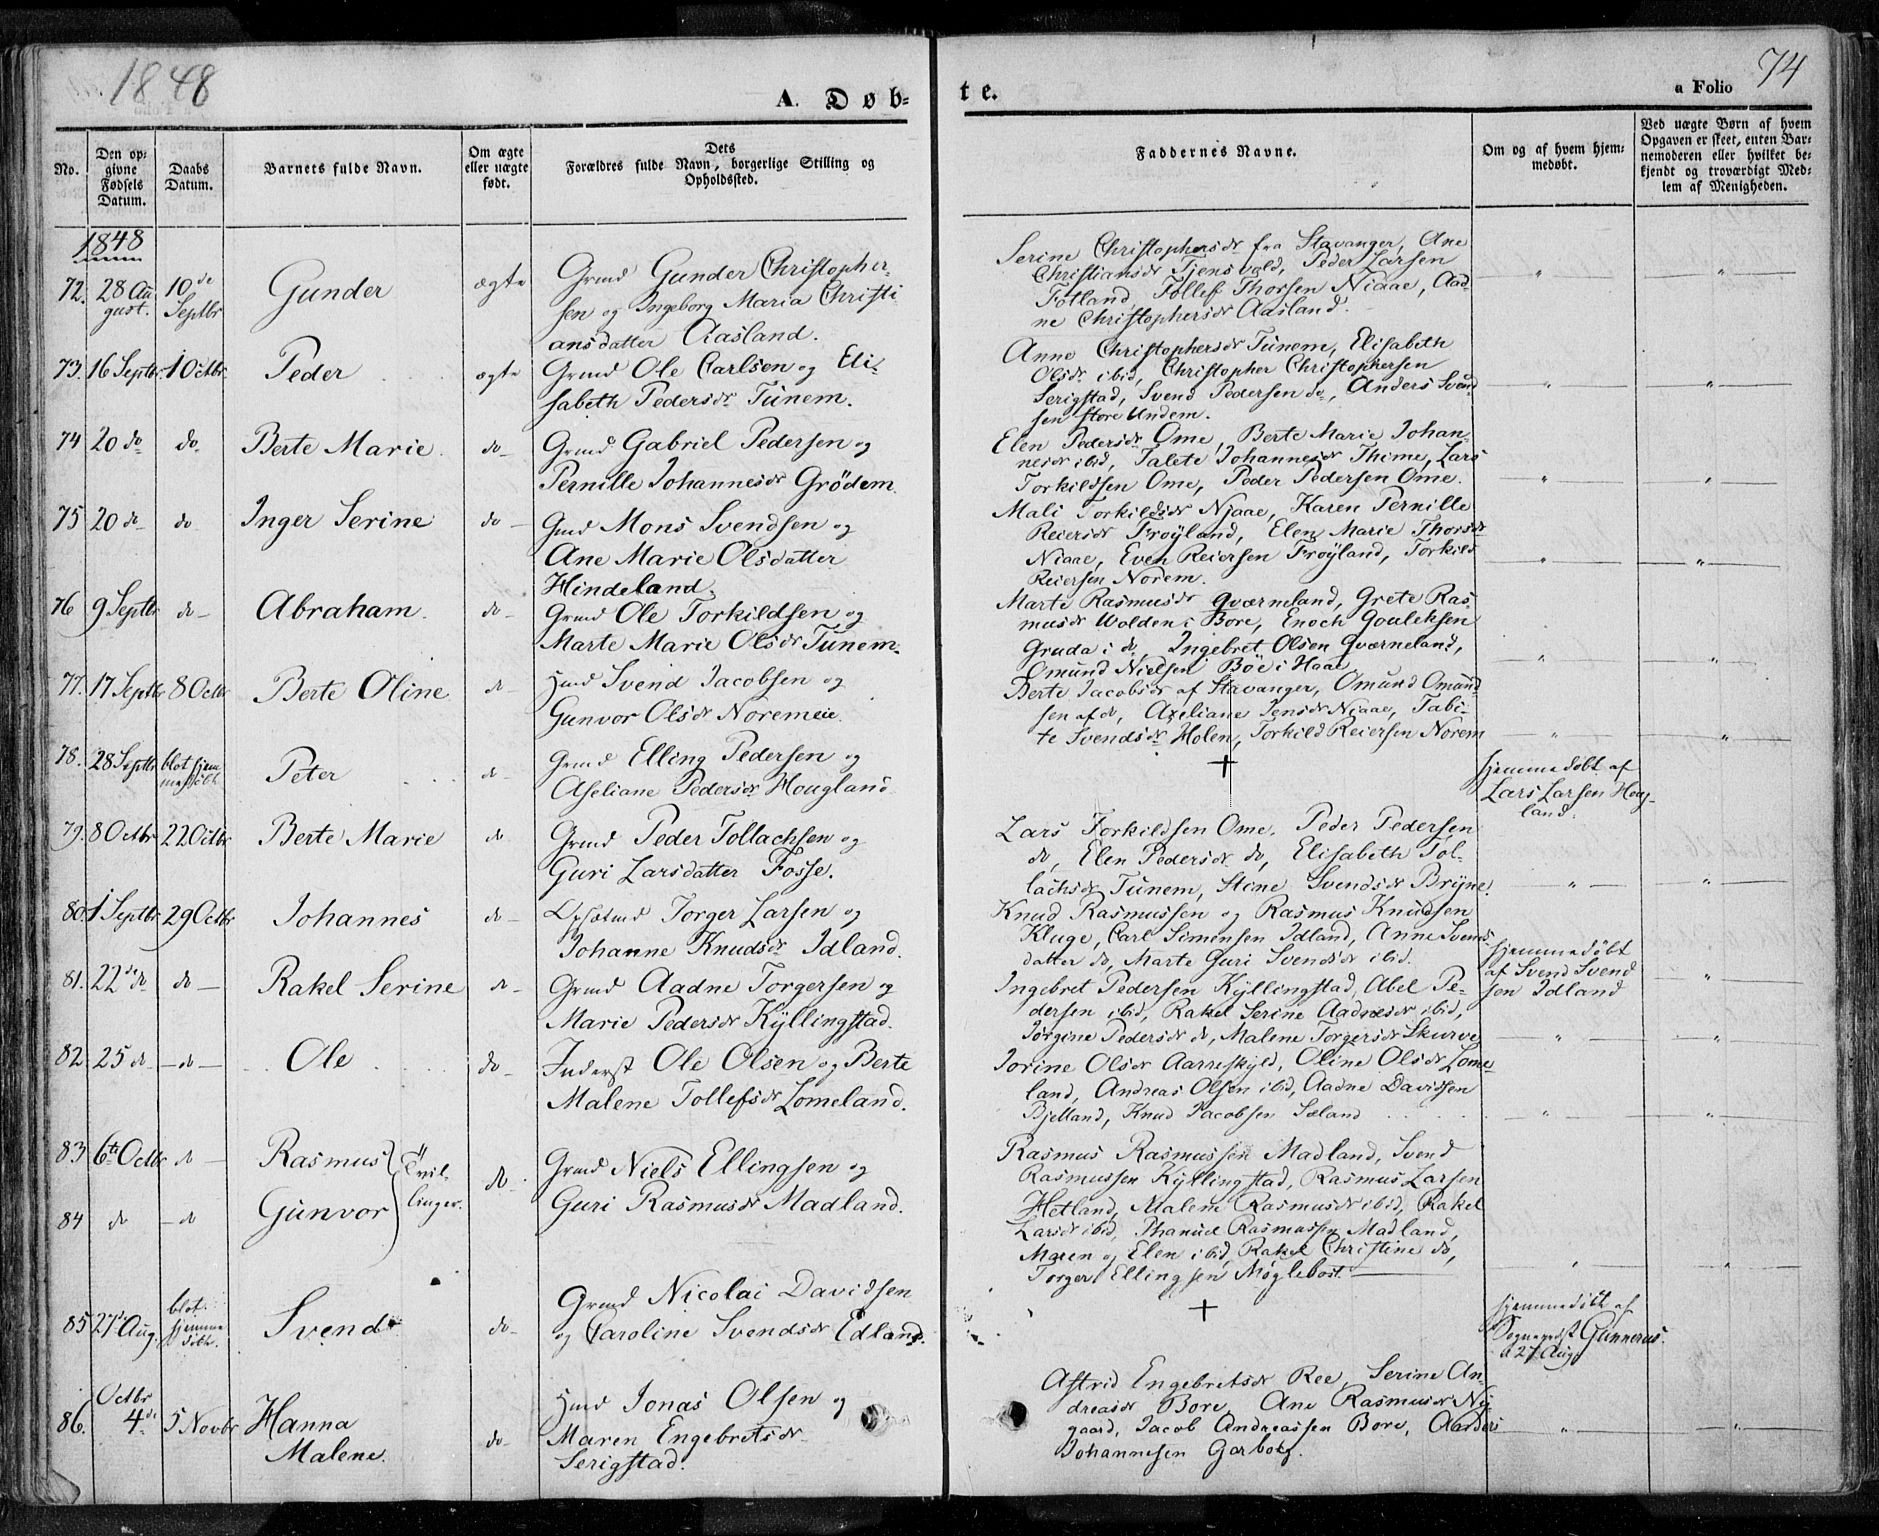 1848
A. Døb-
te.
a Folio
74
No.
Den op-
givne
Fødsels
Datum.
Daabs
Datum.
Barnets fulde Navn.
Om ægte
eller uægte
født.
Dets
Forældres fulde Navn, borgerlige Stilling og
Opholdssted.
Faddernes Navne.
Om og af hvem hjem-
medøbt.
Ved uægte Børn af hvem
Opgaven er skeet, enten Bar-
nemoderen eller hvilket be-
kjendt og troværdigt Med-
lem af Menigheden.
1848
72. 28 Au
gust.
10de
Septbr
Gunder
ægte
Grmd Gunder Christopher-
sen og Ingeborg Maria Christi
ansdatter Aasland.
Serine Christophersdr fra Stavanger, Ane
Christiansdr Tjensvold, Peder Larsen
Fotland, Tollef Thorsen Niaae, Aad-
ne Christophersdr Aasland.
73. 16 Septbr. 1 Octbr.
Peder
ægte
Grmd Ole Carlsen og Eli-
sabeth Pedersdr Tunem.
Anne Christophersdr Tunem, Elisabeth
Olsdr ibid, Christopher Christophersen
Serigstad, Svend Pedersen do, Anders Svend
sen store Undem.
74 20 do do
Berte Marie.
do
Grmd Gabriel Pedersen og
Pernille Johannesdr Grödem
Elen Pedersdr Ome, Berte Marie Johan-
nesdr ibid, Talete Johannesdr Thime, Lars
Torkildsen Ome, Peder Pedersen Ome.
75 20 do do
Inger Serine
do
Gmd Mons Svendsen og
Ane Marie Olsdatter
Hindeland.
Mali Torkildsdr Njaae, Karen Pernille
Reiersdr Fröyland, Elen Marie Thorsdr
Niaae, Even Reiersen Fröyland, Torkild
Reiersen Norem.
76 9 Septbr do
Abraham.
do
Grmd Ole Torkildsen og
Marte Marie Olsdr Tunem.
Marte Rasmusdr Qværneland, Grete Ras
musdr Wolden i Bore, Enoch Gouleksen
Gruda i do, Ingebret Olsen Qværneland,
Omund Nielsen Böe i Haae
77. 17 Septbr 8 Octbr
Berte Oline
do
Hmd Svend Jacobsen og
Gunvor Olsdr Noremeie.
Berte Jacobsdr af Stavanger, Omund Omund
sen af do, Axeliane Jensdr Niaae, Tabi-
te Svendsdr Holen, Torkild Reiersen Norem
78. 28 Septbr
blot hjem
medöbt.
Peter
do
Grmd Elling Pedersen og
Aseliane Pedersdr Hougland
Hjemmedöbt af
Lars Larsen Houg-
land.
79. 8 Octbr 22 Octbr
Berte Marie
do
Grmd Peder Tollachsen og
Guri Larsdatter Fosse.
Lars Torkildsen Ome, Peder Pedersen
do, Elen Pedersdr do, Elisabeth Tol-
lachsdr Tunem, Stine Svendsdr Bryne.
80. 1 Septbr 29 Octbr
Johannes
do
Opsidmd Torger Larsen og
Johanne Knudsdr Idland.
Knud Rasmussen og Rasmus Knudsen
Kluge, Carl Simonsen Idland, Anne Svends
datter do, Marte Guri Svendsdr ibid.
Hjemmedöbt
af Svend Svend
sen Idland
81. 22de do do
Rakel Serine
do
Grmd Aadne Torgersen og
Marie Pedersdr Kyllingstad.
Ingebret Pedersen Kyllingstad, Abel Pe-
dersen ibid, Rakel Serine Aadnesdr ibid,
Jörgine Pedersdr do, Malene Torgersdr Skurve
82. 25 do do
Ole
do
Inderst Ole Olsen og Berte
Malene Tollefsdr Lomeland.
Jorine Olsdr Aarreskyld, Oline Olsdr Lome-
land, Andreas Olsen ibid, Aadne Davidsen
Bjelland, Knud Jacobsen Sæland
83. 6te Octbr do
Rasmus
84 do do
Gunvor
Tvil-
linger.
do
Grmd Niels Ellingsen og
Guri Rasmusdr Madland.
Rasmus Rasmussen Madland, Svend
Rasmussen Kyllingstad, Rasmus Larsen
Hetland, Malene Rasmusdr ibid, Rakel
Larsdr ibid, Thamuel Rasmussen Madland,
Maren og Elen ibid, Rakel Christine do,
Torger Ellingsen Moglebost.
85 27de Aug.
blot
hjemme
döbt.
Svend
do
Grmd Nicolai Davidsen
og Caroline Svendsdr Edland.
Hjemmedöbt af
Sognepræst Gunnerus.
d 27 Aug.
86. Octbr
4de
5 Novbr
Hanna
Malene.
do
Hmd Jonas Olsen og
Maren Engebretsdr
Serigstad.
Astrid Engebretsdr Ree, Serine An-
dreasdr Bore, Ane Rasmusdr Ny-
gaard, Jacob Andreassen Bore, Anders
Johannesen Garborg.